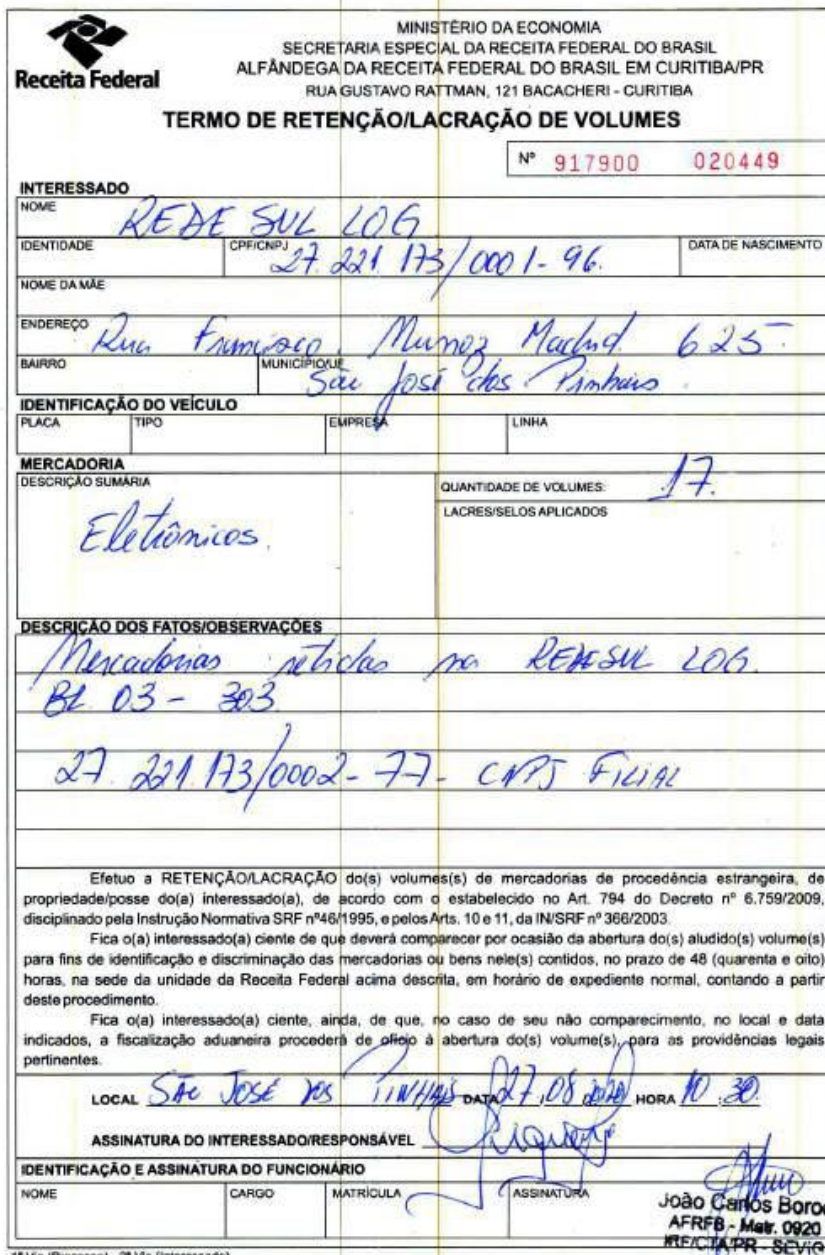 MINISTÉRIO DA ECONOMIA
SECRETARIA ESPECIAL DA RECEITA FEDERAL DO BRASIL
ALFÂNDEGA DA RECEITA FEDERAL DO BRASIL EM CURITIBA/PR
RUA GUSTAVO RATTMAN, 121 BACACHERI - CURITIBA
Receita Federal
TERMO DE RETENÇÃO/LACRAÇÃO DE VOLUMES
Nº 917900 020449
INTERESSADO
NOME REDE SUL LOG
IDENTIDADE CPF/CNPJ 27.221.173/0001-96. DATA DE NASCIMENTO
NOME DA MÃE
ENDEREÇO Rua Munoz 625
BAIRRO MUNICÍPIO/UF São José dos Pinhais
IDENTIFICAÇÃO DO VEÍCULO
PLACA TIPO EMPRESA LINHA
MERCADORIA
DESCRIÇÃO SUMÁRIA QUANTIDADE DE VOLUMES: 17.
LACRES/SELOS APLICADOS
Eletrônicos.
DESCRIÇÃO DOS FATOS/OBSERVAÇÕES
Mercadorias retidas na REDESUL LOG.
BL 03 - 303
27.221.173/0002-77 - CNPJ FILIAL
Efetuo a RETENÇÃO/LACRAÇÃO do(s) volumes(s) de mercadorias de procedência estrangeira, de
propriedade/posse do(a) interessado(a), de acordo com o estabelecido no Art. 794 do Decreto nº 6.759/2009,
disciplinado pela Instrução Normativa SRF nº46/1995, e pelos Arts. 10 e 11, da IN/SRF nº 366/2003.
Fica o(a) interessado(a) ciente de que deverá comparecer por ocasião da abertura do(s) aludido(s) volume(s)
para fins de identificação e discriminação das mercadorias ou bens nele(s) contidos, no prazo de 48 (quarenta e oito)
horas, na sede da unidade da Receita Federal acima descrita, em horário de expediente normal, contando a partir
deste procedimento.
Fica o(a) interessado(a) ciente, ainda, de que, no caso de seu não comparecimento, no local e data
indicados, a fiscalização aduaneira procederá de ofício à abertura do(s) volume(s), para as providências legais
pertinentes.
LOCAL SÃO JOSÉ DOS PINHAIS DATA 27/08/2020 HORA 10:30
ASSINATURA DO INTERESSADO/RESPONSÁVEL
IDENTIFICAÇÃO E ASSINATURA DO FUNCIONÁRIO
NOME CARGO MATRÍCULA ASSINATURA
João Carlos
AFRFB - Matr. 0920
IRF/CTA/PR - SEVIG
1ª Via (Processo) 2ª Via (Interessado)